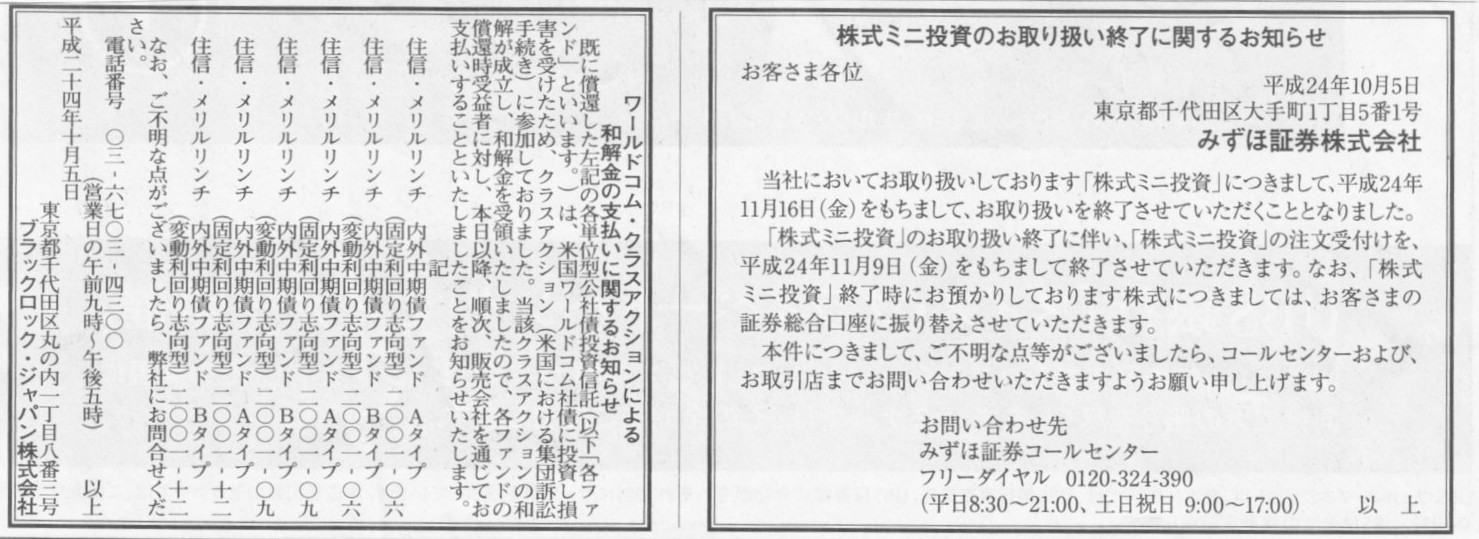 株式ミニ投資のお取り扱い終了に関するお知らせ
お客さま各位
平成24年10月5日
東京都千代田区大手町1丁目5番1号
みずほ証券株式会社
当社においてお取り扱いしております「株式ミニ投資」につきまして、平成24年
11月16日(金)をもちまして、お取り扱いを終了させていただくこととなりました。
「株式ミニ投資」のお取り扱い終了に伴い、「株式ミニ投資」の注文受付けを、
平成24年11月9日(金)をもちまして終了させていただきます。なお、「株式
ミニ投資」終了時にお預かりしております株式につきましては、お客さまの
証券総合口座に振り替えさせていただきます。
本件につきまして、ご不明な点等がございましたら、コールセンターおよび、
お取引店までお問い合わせいただきますようお願い申し上げます。
お問い合わせ先
みずほ証券コールセンター
フリーダイヤル 0120-324-390
(平日8:30〜21:00、土日祝日 9:00〜17:00) 以 上
ワールドコム・クラスアクションによる
和解金の支払いに関するお知らせ
既に償還した左記の各単位型公社債投資信託(以下「各ファ
ンド」といいます。)は、米国ワールドコム社債に投資し損
害を受けたため、クラスアクション(米国における集団訴訟
手続き)に参加しておりました。当該クラスアクションの和
解が成立し、和解金を受領いたしましたので、各ファンドの
償還時受益者に対し、本日以降、順次、販売会社を通じてお
支払いすることといたしましたことをお知らせいたします。
記
住信・メリルリンチ 内外中期債ファンド Aタイプ
(固定利回り志向型) 二〇〇一-〇六
住信・メリルリンチ 内外中期債ファンド Bタイプ
(変動利回り志向型) 二〇〇一-〇六
住信・メリルリンチ 内外中期債ファンド Aタイプ
(固定利回り志向型) 二〇〇一-〇九
住信・メリルリンチ 内外中期債ファンド Bタイプ
(変動利回り志向型) 二〇〇一-〇九
住信・メリルリンチ 内外中期債ファンド Aタイプ
(固定利回り志向型) 二〇〇一-十二
住信・メリルリンチ 内外中期債ファンド Bタイプ
(変動利回り志向型) 二〇〇一-十二
なお、ご不明な点がございましたら、弊社にお問合せくだ
さい。
電話番号 〇三-六七〇三-四三〇〇
(営業日の午前九時〜午後五時) 以上
平成二十四年十月五日
東京都千代田区丸の内一丁目八番三号
ブラックロック・ジャパン株式会社